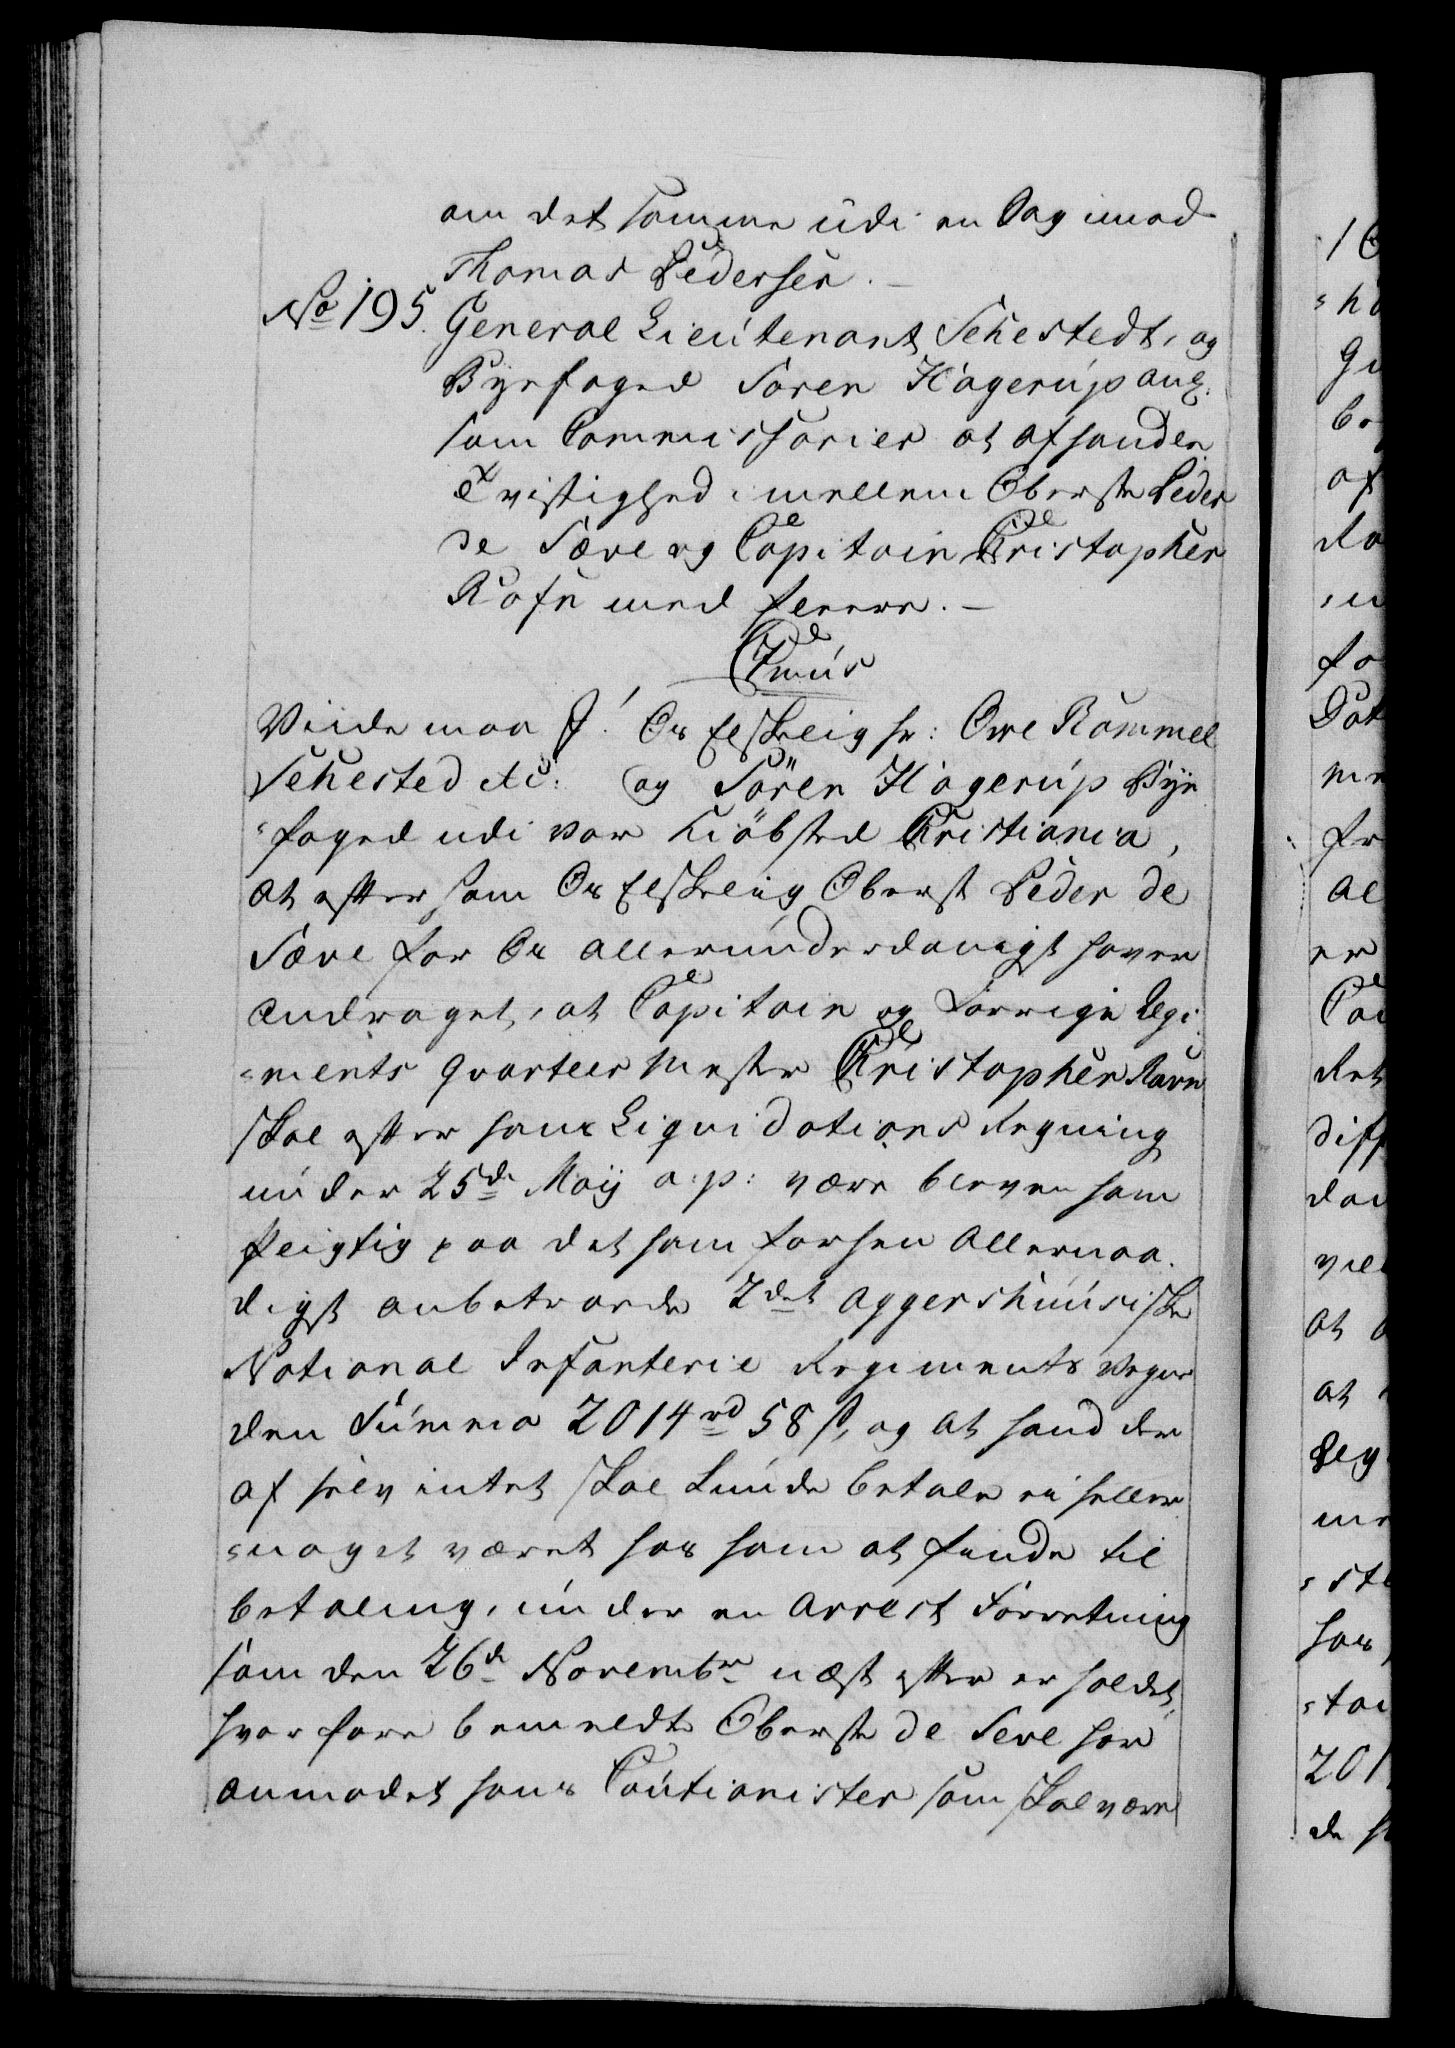 om det samme udi en Sag imod
Thomas Pedersen. —
No 195. General Lieutenant Sehestedt, og
Byefoged Søren Hagerup ang:
som Commissarier at afhandle
Tvistighed imellem Oberste Peder
de Seve og Capitain Christopher
Rafn med fleere. —
C7mus
Viide maa I! Os Elskelig Hr: Owe Rammel
Sehested etc: og Sören Hagerup Bye
=foged udi vor Kiöbsted Christiania,
at efftersom Os Elskelig Oberst Peder de
Seve for Os allerunderdanigst haver
andraget, at Capitain og forrige Regi
=ments Qvarteer Mester Christopher Ravn
skal effter hans Liqvidations Regning
under 25de Maij a: p: være bleven ham
skyldig paa det ham forhen allernaa
digst anbetroede 2det Aggershuusiske
National Infanterie Regiments vegne
den Summa 2014 rd 58 s, og at hand der
af selv intet skal kunde betale ei heller
=noget været hos ham at finde til
betaling, under en Arrest Forretning
som den 26de Novembr næst efter er holdet,
hvorfore bemeldte Oberste de Seve har
anmodet hans Cautionister som skal være